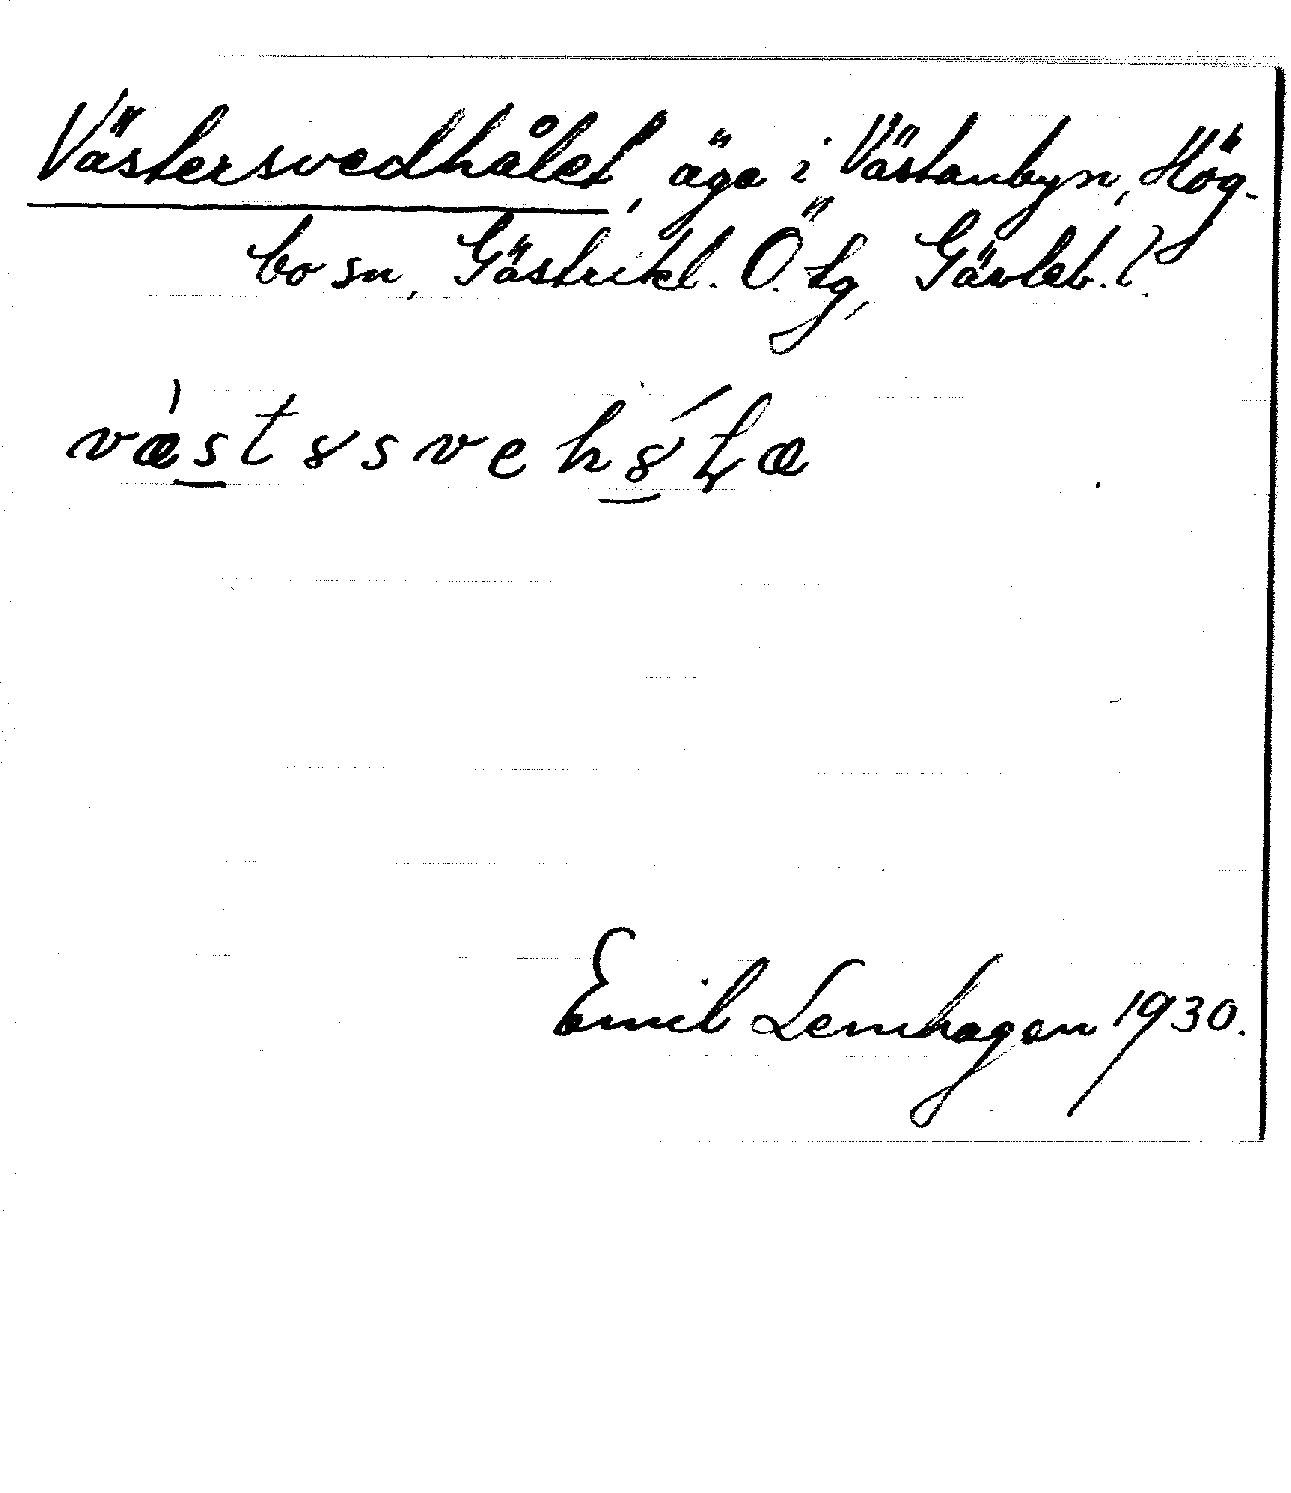 Västersvedhålet, äga i Västanbyn, Hög-
bo sn, Gästrikl. Ö. tg, Gävleb. l.
væ̀stɤsvehɤ́ɫæ
Emil Lemhagen 1930.